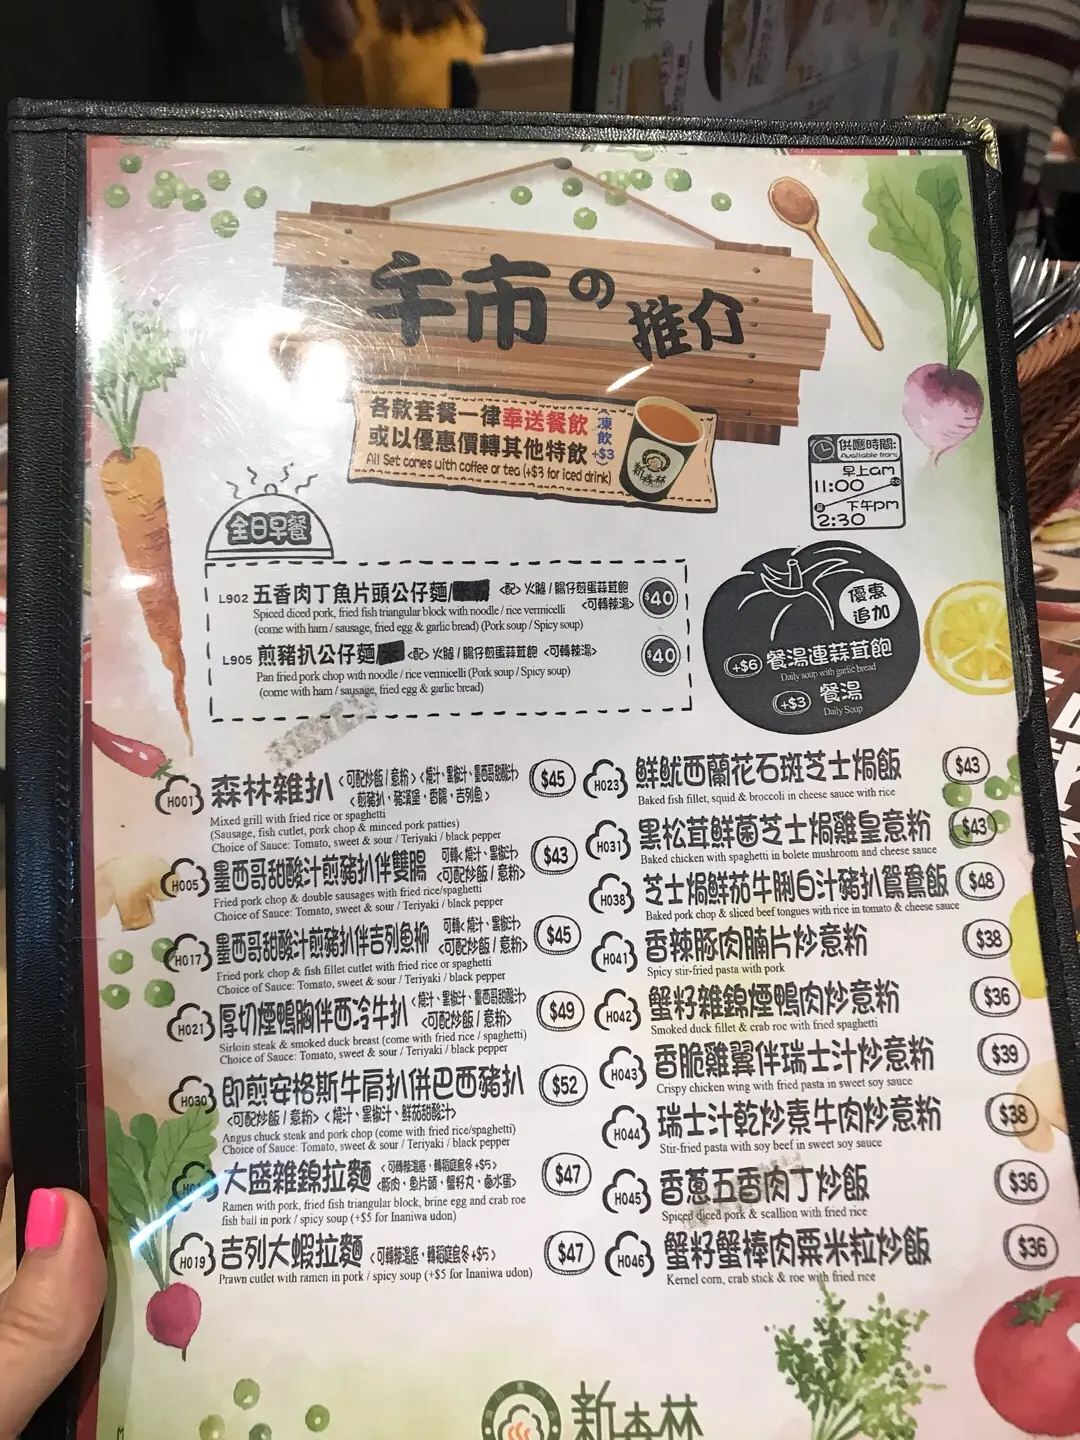 午市の推介
各款套餐一律奉送餐飲
或以優惠價轉其他特飲
凍飲+$3
All Set comes with coffee or tea (+$3 for iced drink)
新森林
供應時間:
Available from:
早上am
11:00
至to
下午pm
2:30
全日早餐
L902 五香肉丁魚片頭公仔麵/米粉 <配> 火腿 / 腸仔煎蛋蒜茸飽 <可轉辣湯> $40
Spiced diced pork, fried fish triangular block with noodle / rice vermicelli
(come with ham / sausage, fried egg & garlic bread) (Pork soup / Spicy soup)
L905 煎豬扒公仔麵/米 <配> 火腿 / 腸仔煎蛋蒜茸飽 <可轉辣湯> $40
Pan fried pork chop with noodle / rice vermicelli (Pork soup / Spicy soup)
(come with ham / sausage, fried egg & garlic bread)
優惠追加
+$6 餐湯連蒜茸飽
Daily soup with garlic bread
+$3 餐湯
Daily Soup
H001 森林雜扒 <可配炒飯 / 意粉> <燒汁、黑椒汁、墨西哥甜酸汁> $45
<煎豬扒、豬漢堡、香腸、吉列魚>
Mixed grill with fried rice or spaghetti
(Sausage, fish cutlet, pork chop & minced pork patties)
Choice of Sauce: Tomato, sweet & sour / Teriyaki / black pepper
H005 墨西哥甜酸汁煎豬扒伴雙腸 可轉< 燒汁、黑椒汁> <可配炒飯 / 意粉> $43
Fried pork chop & double sausages with fried rice/spaghetti
Choice of Sauce: Tomato, sweet & sour / Teriyaki / black pepper
H017 墨西哥甜酸汁煎豬扒伴吉列魚柳 可轉< 燒汁、黑椒汁> <可配炒飯 / 意粉> $45
Fried pork chop & fish fillet cutlet with fried rice or spaghetti
Choice of Sauce: Tomato, sweet & sour / Teriyaki / black pepper
H021 厚切煙鴨胸伴西冷牛扒 <燒汁、黑椒汁、墨西哥甜酸汁> <可配炒飯 / 意粉> $49
Sirloin steak & smoked duck breast (come with fried rice / spaghetti)
Choice of Sauce: Tomato, sweet & sour / Teriyaki / black pepper
H030 即煎安格斯牛肩扒併巴西豬扒 $52
<可配炒飯 / 意粉> < 燒汁、黑椒汁、鮮茄甜酸汁>
Angus chuck steak and pork chop (come with fried rice/spaghetti)
Choice of Sauce: Tomato, sweet & sour / Teriyaki / black pepper
大盛雜錦拉麵 <可轉辣湯底，轉稻庭烏冬+$5> <豚肉、魚片頭、蟹籽丸、鹵水蛋> $47
Ramen with pork, fried fish triangular block, brine egg and crab roe
fish ball in pork / spicy soup (+$5 for Inaniwa udon)
H019 吉列大蝦拉麵 <可轉辣湯底，轉稻庭烏冬+$5> $47
Prawn cutlet with ramen in pork / spicy soup (+$5 for Inaniwa udon)
H023 鮮魷西蘭花石斑芝士焗飯 $43
Baked fish fillet, squid & broccoli in cheese sauce with rice
H031 黑松茸鮮菌芝士焗雞皇意粉 $43
Baked chicken with spaghetti in bolete mushroom and cheese sauce
H038 芝士焗鮮茄牛脷白汁豬扒鴛鴦飯 $48
Baked pork chop & sliced beef tongues with rice in tomato & cheese sauce
H041 香辣豚肉腩片炒意粉 $38
Spicy stir-fried pasta with pork
H042 蟹籽雜錦煙鴨肉炒意粉 $36
Smoked duck fillet & crab roe with fried spaghetti
H043 香脆雞翼伴瑞士汁炒意粉 $39
Crispy chicken wing with fried pasta in sweet soy sauce
H044 瑞士汁乾炒素牛肉炒意粉 $38
Stir-fried pasta with soy beef in sweet soy sauce
H045 香蔥五香肉丁炒飯 $36
Spiced diced pork & scallion with fried rice
H046 蟹籽蟹棒肉粟米粒炒飯 $36
Kernel corn, crab stick & roe with fried rice
新森林